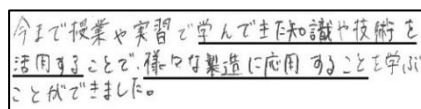 今まで授業や実習で学んできた知識や技術を
活用することで、様々な製造に応用することを学ぶ
ことができました。